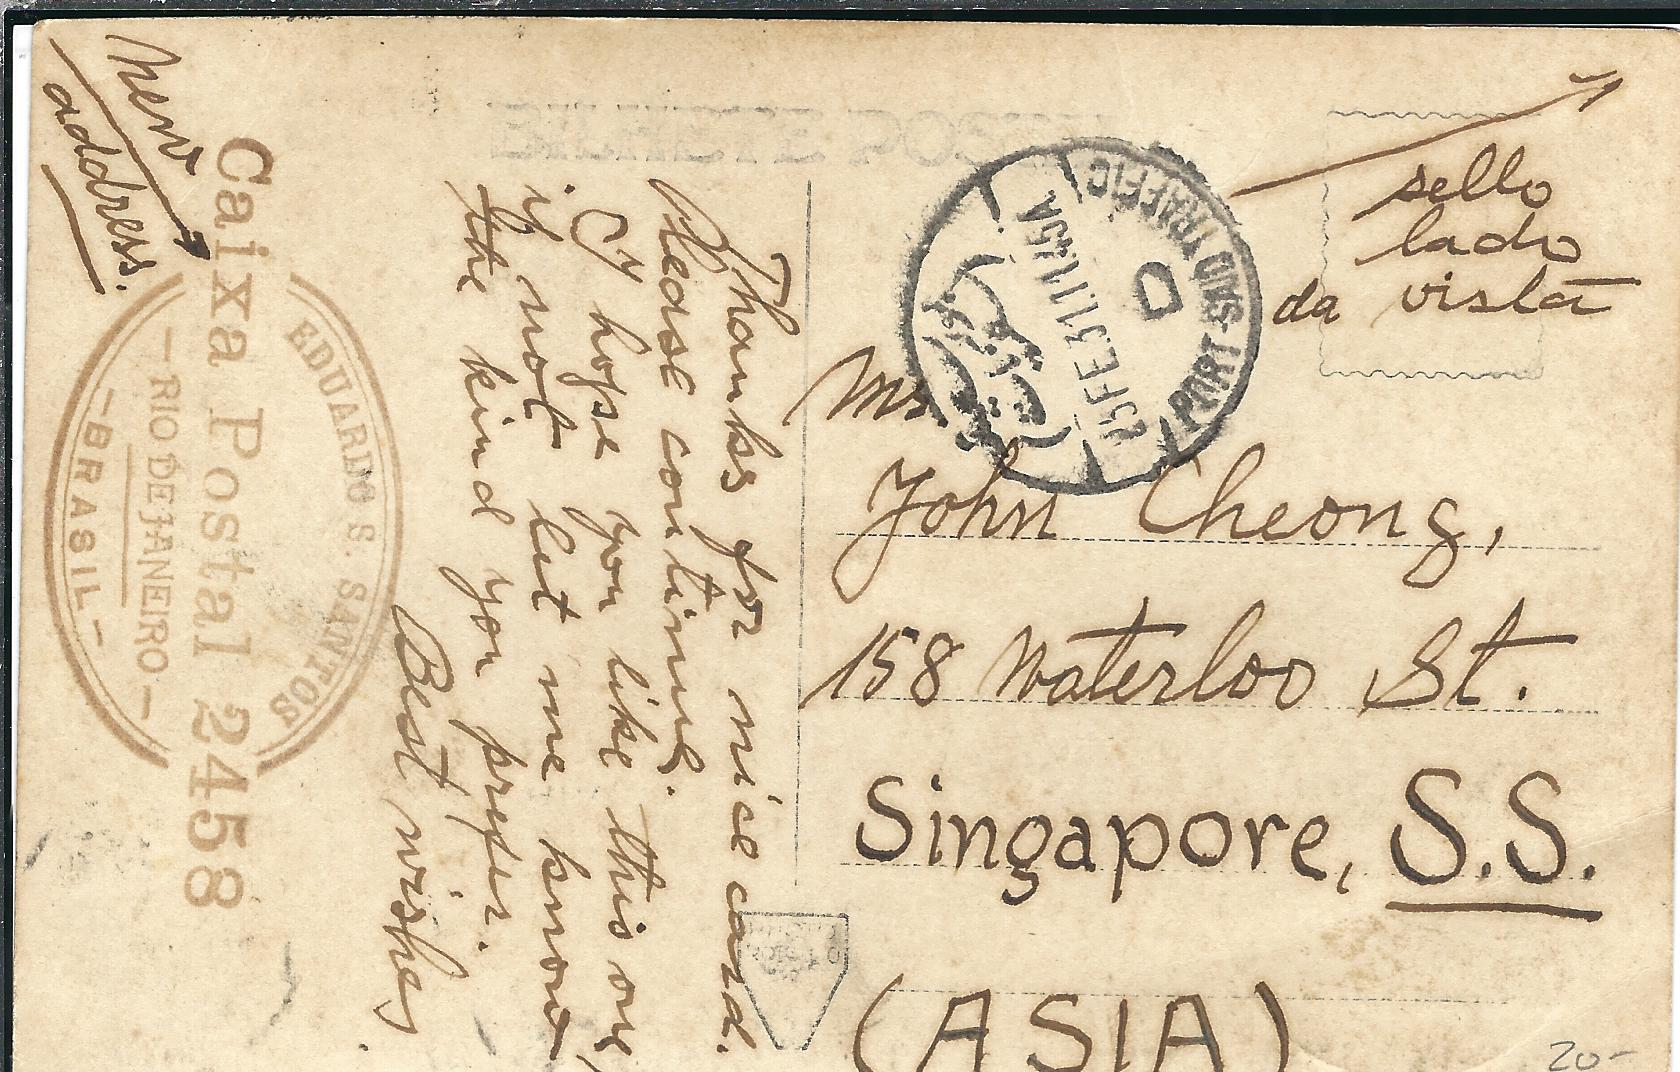 new
address.
EDUARDO S. SANTOS
Caixa Postal 2458
—RIO DE JANEIRO—
—BRASIL—
Thanks for nice card.
Please continue.
I hope you like this one,
if not let me know
the kind you prefer.
Best wishes
BILHETE POSTAL
PORT-SAID TRAFFIC
D
23 FE. 31. 11 45 A
sello
lado
da vista
Mr.
John Cheong,
158 Waterloo St.
Singapore, S.S.
(ASIA)
20-